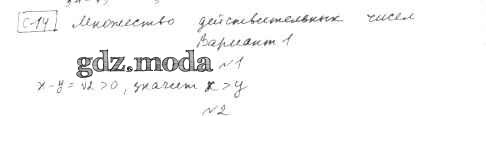 С-14 Множество действительных чисел
Вариант 1
gdz.moda №1
x-y = √2 > 0, значит x > y
№2